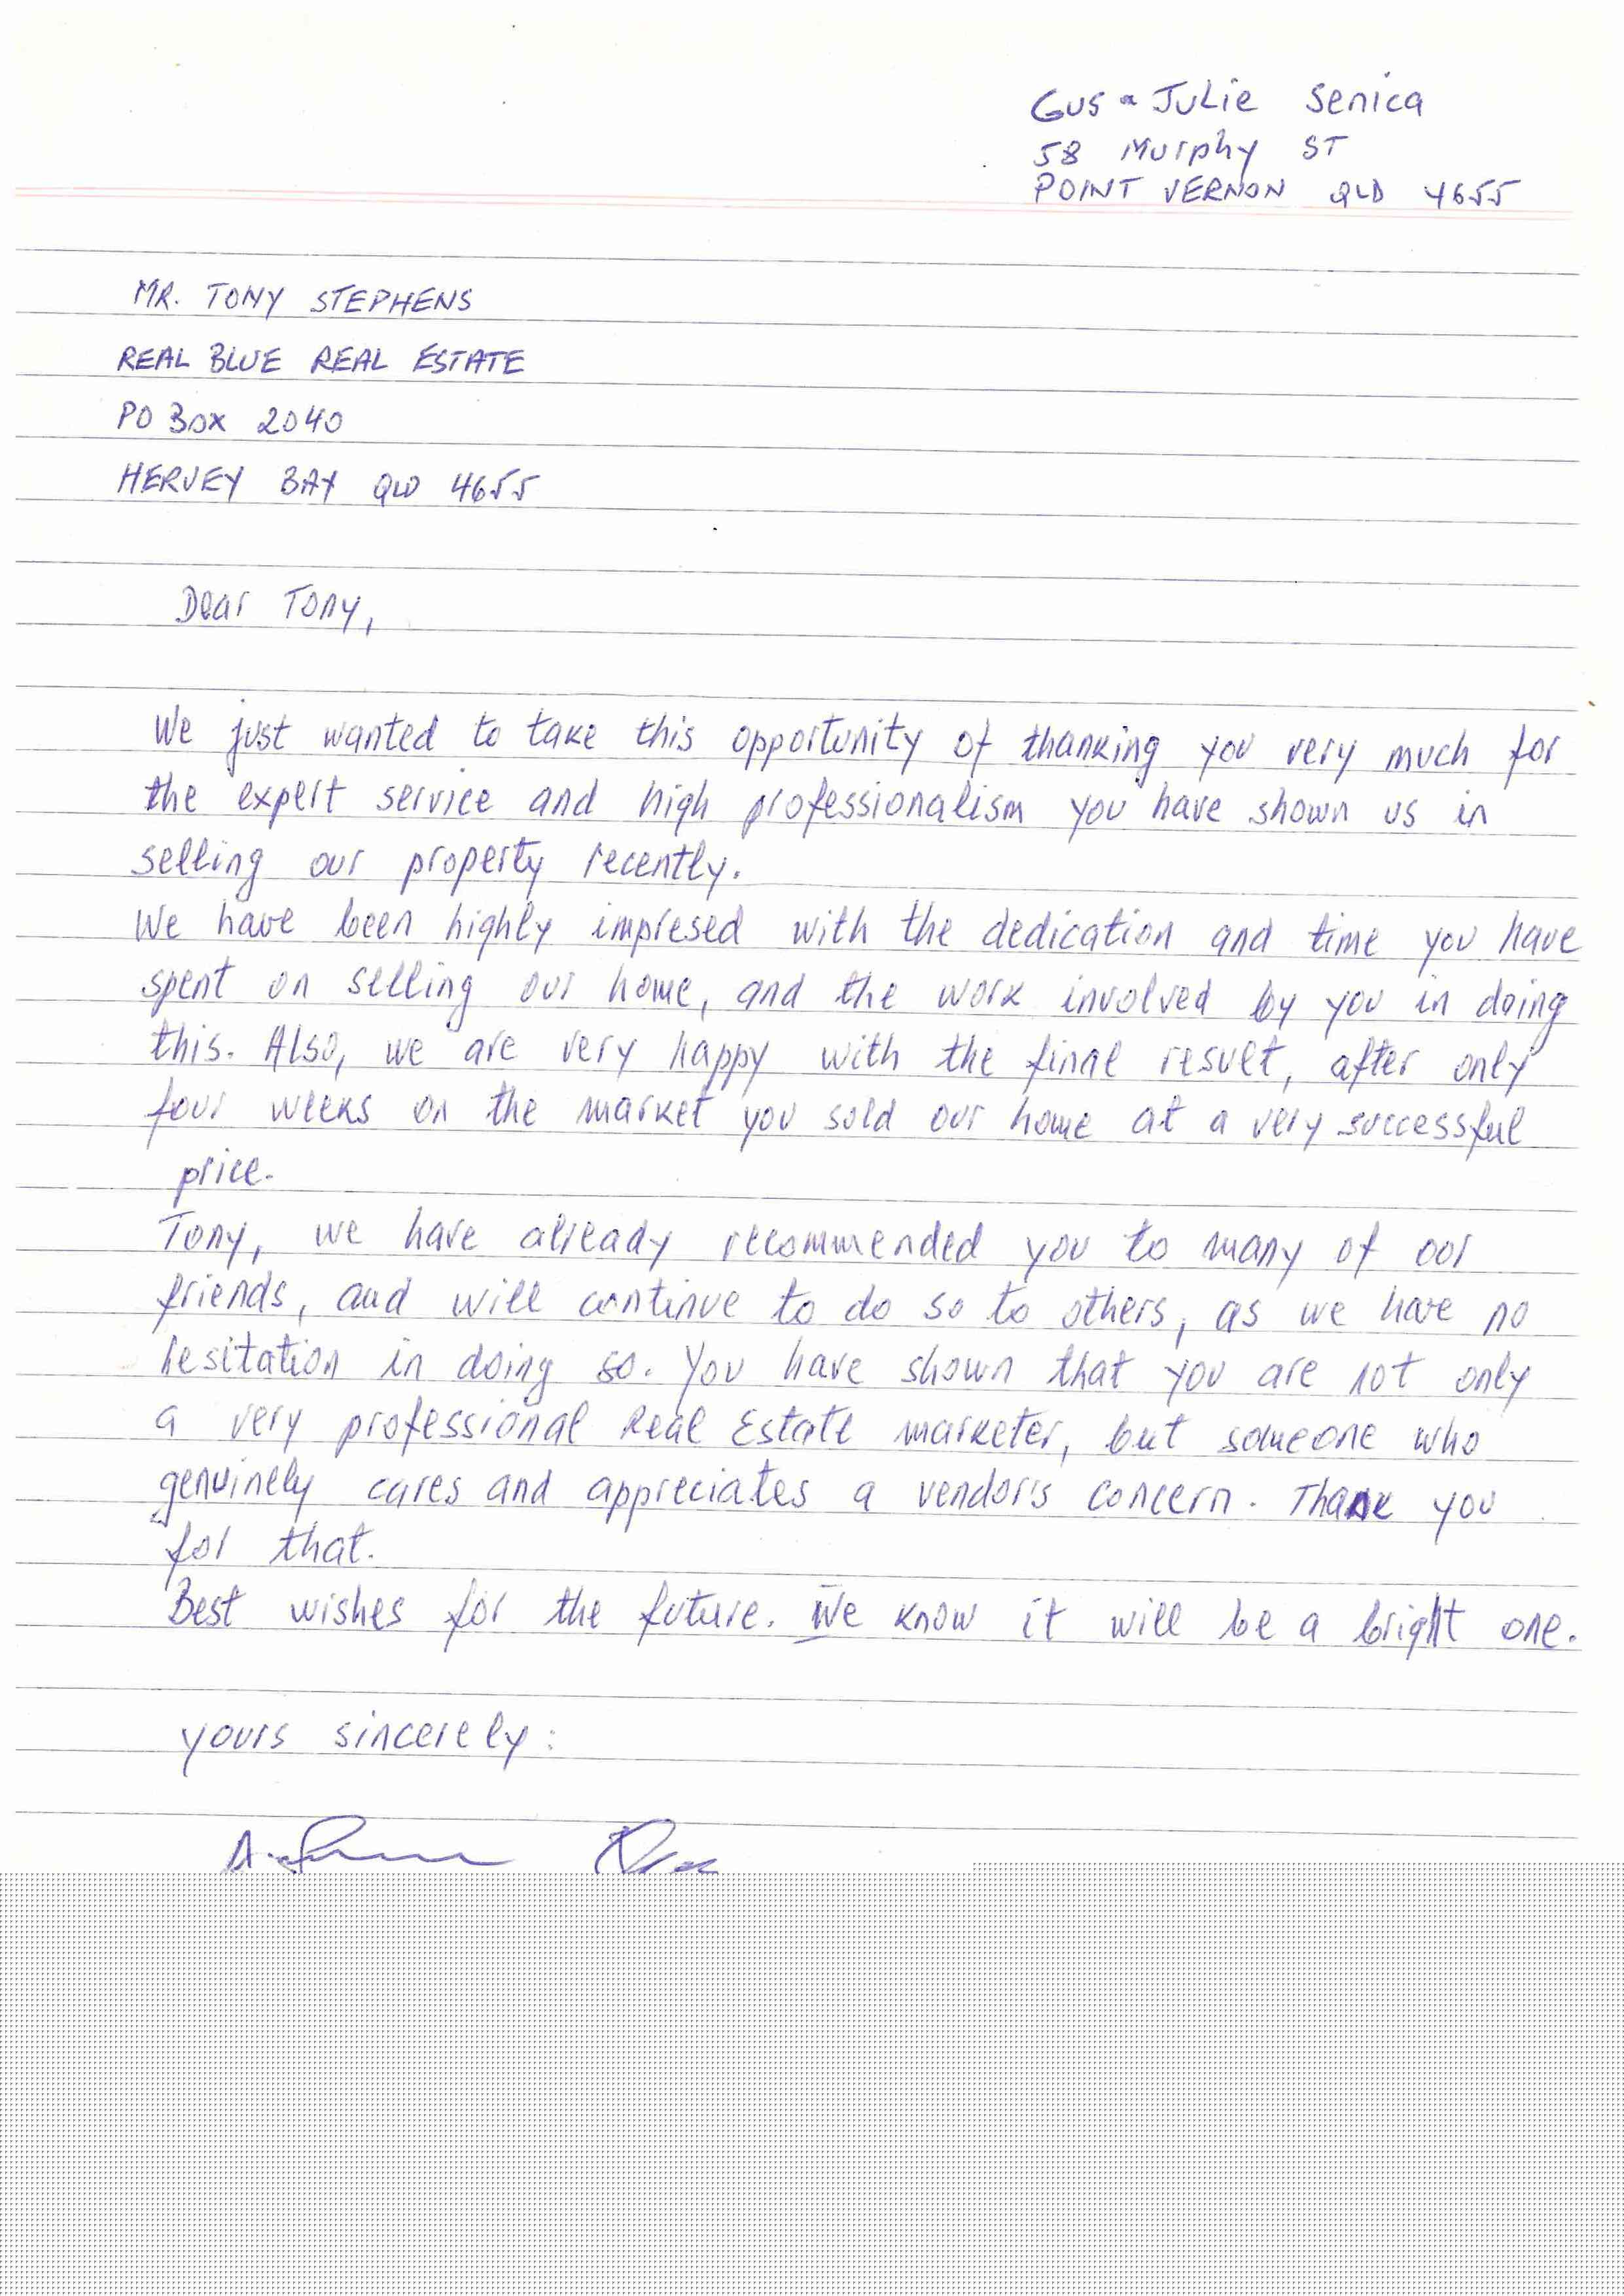 Gus & Julie Senica
58 Murphy ST
POINT VERNON QLD 4655
MR. TONY STEPHENS
REAL BLUE REAL ESTATE
PO BOX 2040
HERVEY BAY QLD 4655
Dear Tony,
We just wanted to take this opportunity of thanking you very much for
the expert service and high professionalism you have shown us in
selling our property recently.
We have been highly impresed with the dedication and time you have
spent on selling our home, and the work involved by you in doing
this. Also, we are very happy with the final result, after only
four weeks on the market you sold our home at a very successful
price.
Tony, we have already recommended you to many of our
friends, and will continue to do so to others, as we have no
hesitation in doing so. You have shown that you are not only
a very professional Real Estate marketer, but someone who
genuinely cares and appreciates a vendor's concern. Thank you
for that.
Best wishes for the future. We know it will be a bright one.
yours sincerely: